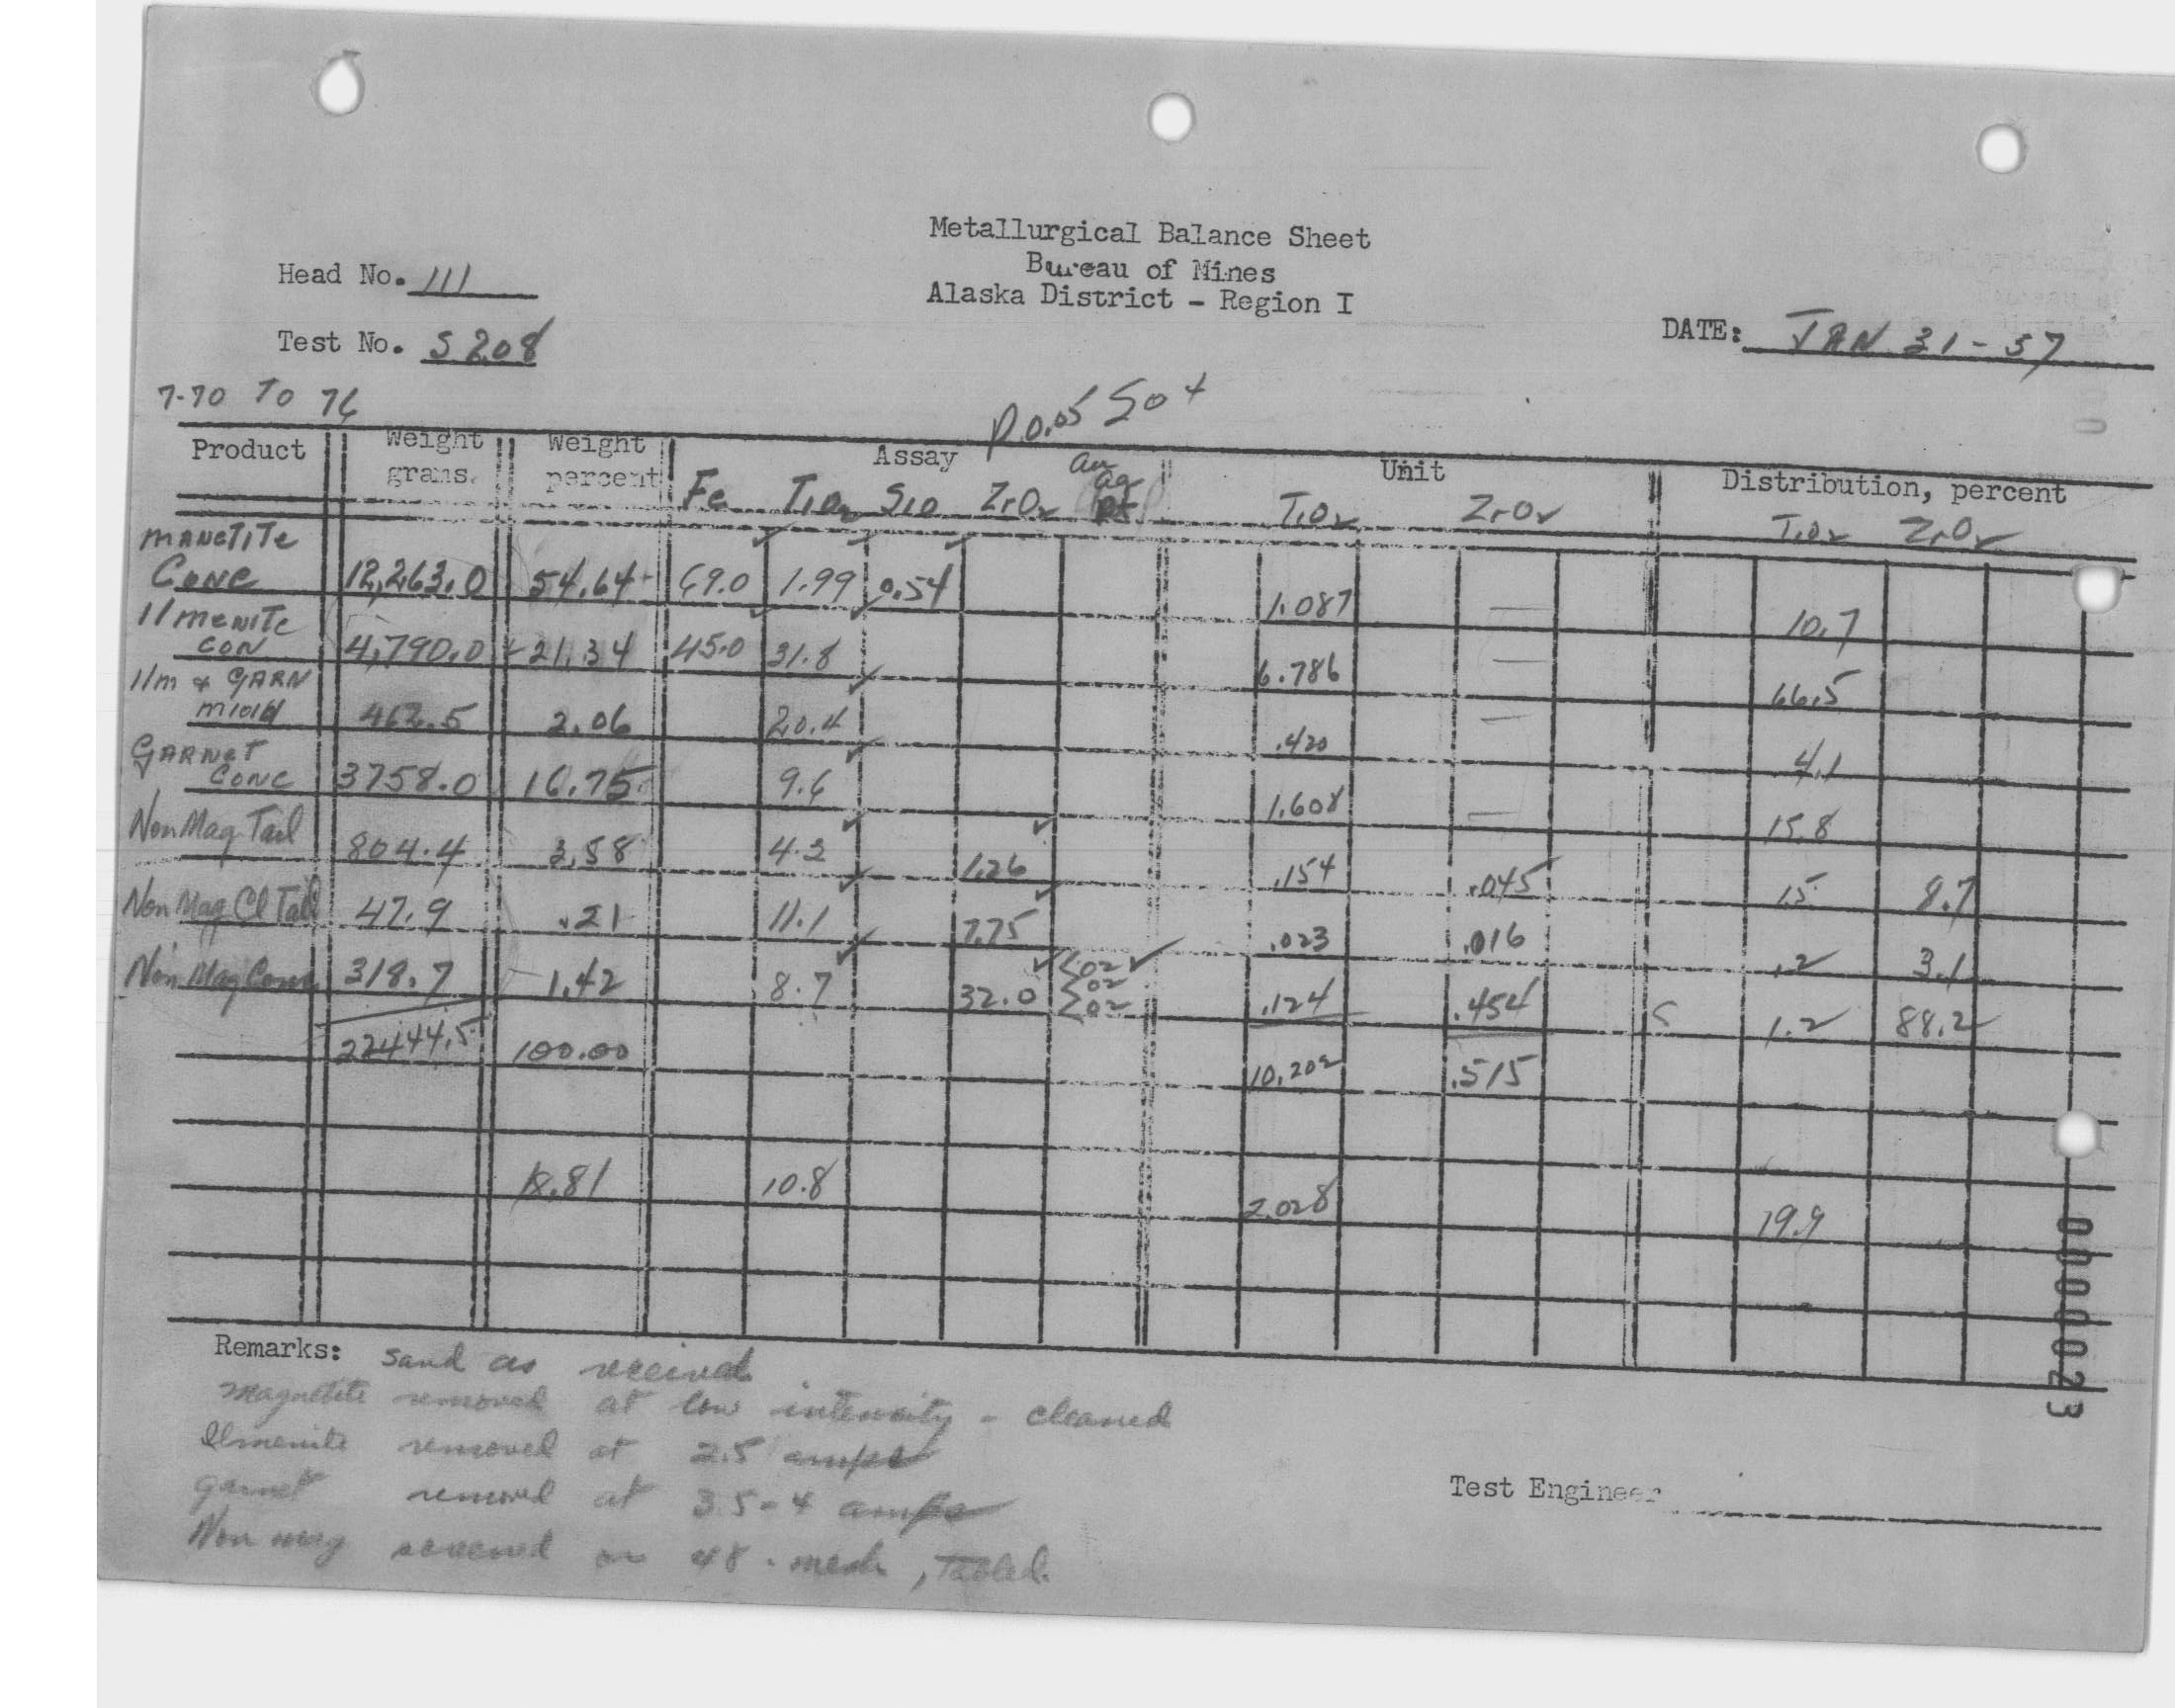 Metallurgical Balance Sheet
Bureau of Mines
Alaska District - Region I
Head No. 111
Test No. S208
DATE: JAN 31-57
7-70 TO 76
Product Weight grams. Weight percent Assay Unit Distribution, percent
Fe TiO2 SiO ZrO2 Au Ag Pt TiO2 ZrO2 TiO2 ZrO2
MANETITE
CONC 12,263.0 54.64 69.0 1.99 0.54 1.087 — 10.7
IlmENITE
CON 4,790.0 21.34 45.0 31.8 6.786 — 66.5
Ilm & GARN
462.5 2.06 20.4 .420 — 4.1
GARNET
CONC 3758.0 16.75 9.6 1.608 — 15.8
Non Mag Tail 804.4 3.58 4.3 1.26 .154 .045 1.5 8.7
Non Mag Cl Tail 47.9 .21 11.1 7.75 .023 .016 .2 3.1
Non Mag Conc 318.7 1.42 8.7 32.0 .124 .454 1.2 88.2
22444.5 100.00 10.202 .515
18.81 10.8 2.028 19.9
Remarks: Sand as received
Magnetite removed at low intensity - cleaned
Ilmenite removed at 2.5 amps
Garnet removed at 3.5-4 amps
Non mag screened on 48-mesh, Tabled.
Test Engineer
00000023